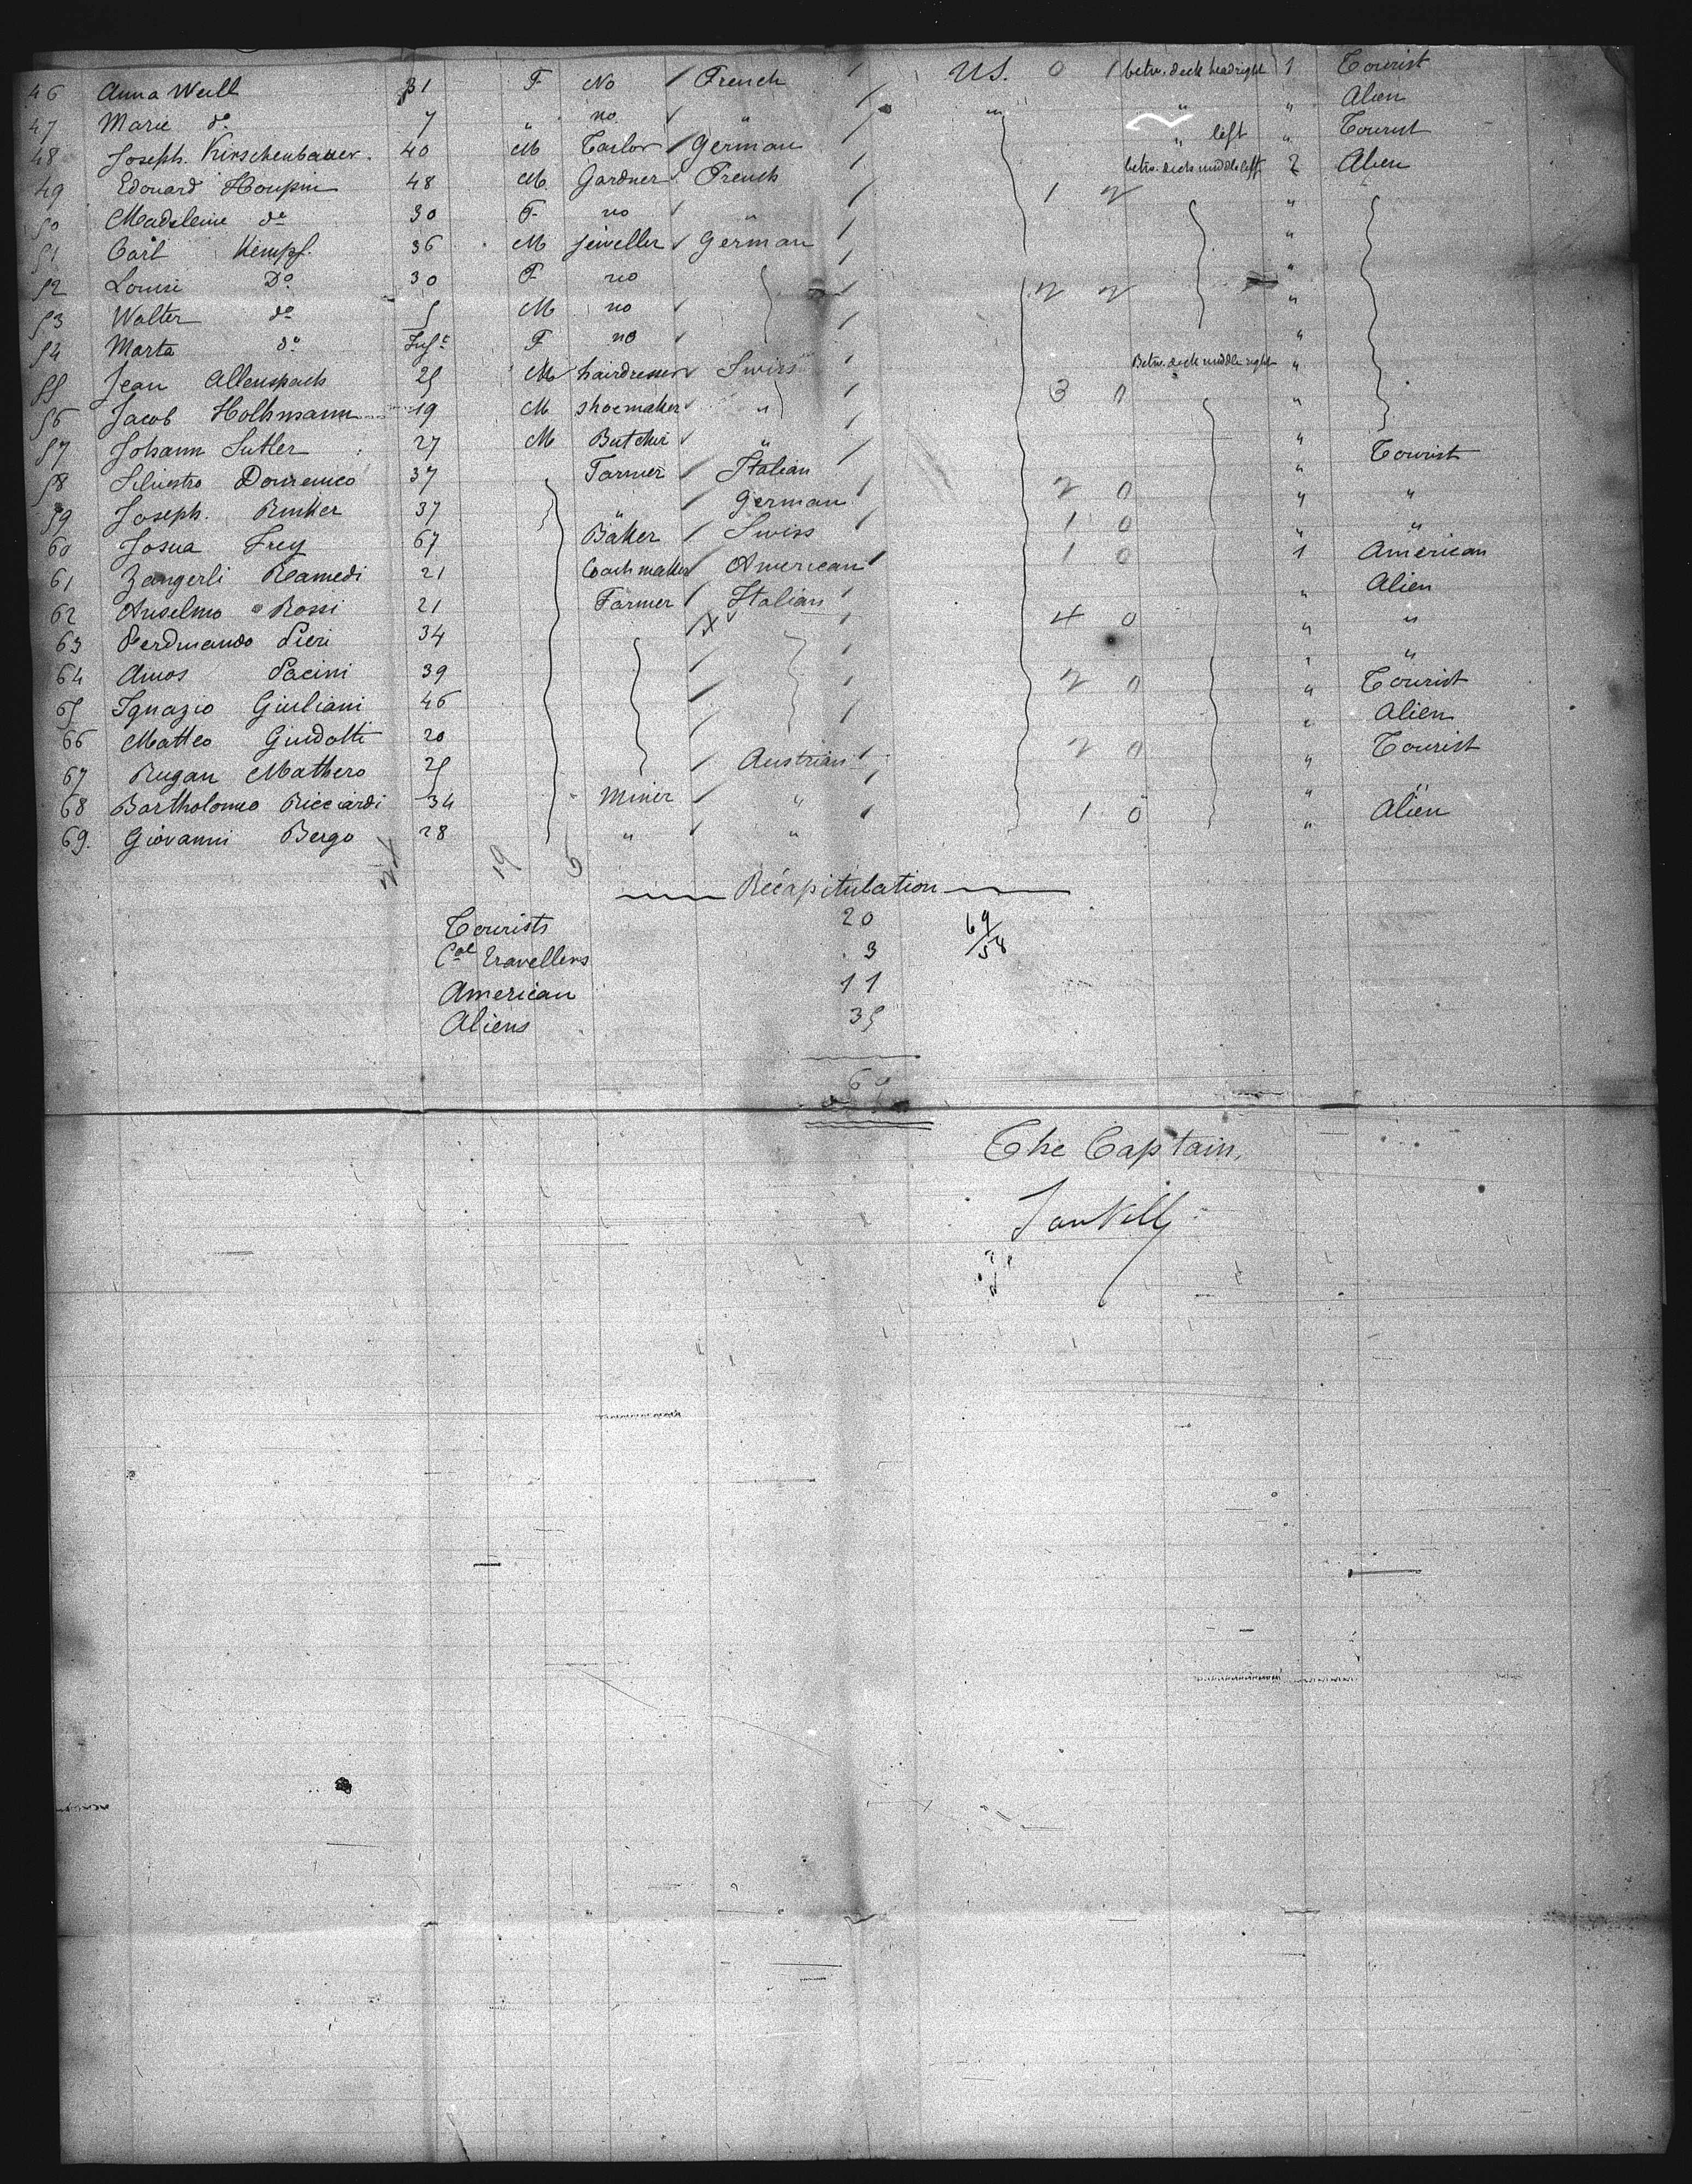 46 Anna Weill 31 F No French U.S. 0 1 betw. deck head right 1 Tourist
47 Marie do 7 " no " " " " Alien
48 Joseph. Kirschenbauer. 40 M Tailor German " left " Tourist
49 Edouard Houpin 48 M. Gardner French betw. deck middle left 2 Alien
50 Madeleine do 30 F. no " 1 2 "
51 Carl Kempf. 36 M Jeweller German "
52 Louise Do 30 F no "
53 Walter do 5 M no 2 2 "
54 Marta do Inft F no "
55 Jean Allenspach 25 M hairdresser Swiss Betw. deck middle right "
56 Jacob Holhmann 19 M shoemaker " 3 0 "
57 Johann Sutler 27 M Butcher " " Tourist
58 Silvestro Domenico 37 Farmer Italian 2 0 " "
59 Joseph. Rinker 37 " German 1 0 " "
60 Josua Frey 67 Baker Swiss 1 0 1 American
61 Zangerli Ramedi 21 Coachmaker American Alien
62 Anselmo Rossi 21 Farmer Italian 4 0 " "
63 Ferdinando Pieri 34 " "
64 Amos Pacini 39 2 0 " Tourist
65 Ignazio Giuliani 46 " Alien
66 Matteo Guidotti 20 2 0 " Tourist
67 Rugan Mathero 25 Austrian " "
68 Bartholomeo Ricciardi 34 Miner " 1 0 " Alien
69. Giovanni Bergo 28 " "
19 6
Récapitulation
Tourists 20 69/58
Cal Travellers 3
American 11
Aliens 35
69
The Captain,